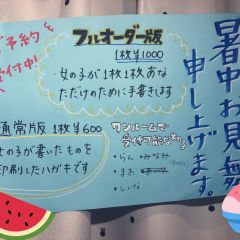 暑中お見舞
申し上げます。
ご予約
受付中!
フルオーダー版
1枚¥1000
・女の子が1枚1枚あな
ただけのために手書きします
通常版 1枚¥600
女の子が書いたものを
印刷したハガキです
ワンルームで
受付可能な
・らん ・みなみ
・まお
・しいな